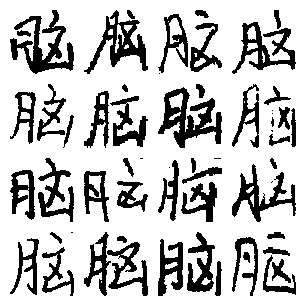 脑脑脑脑
脑脑脑脑
脑脑脑脑
脑脑脑脑